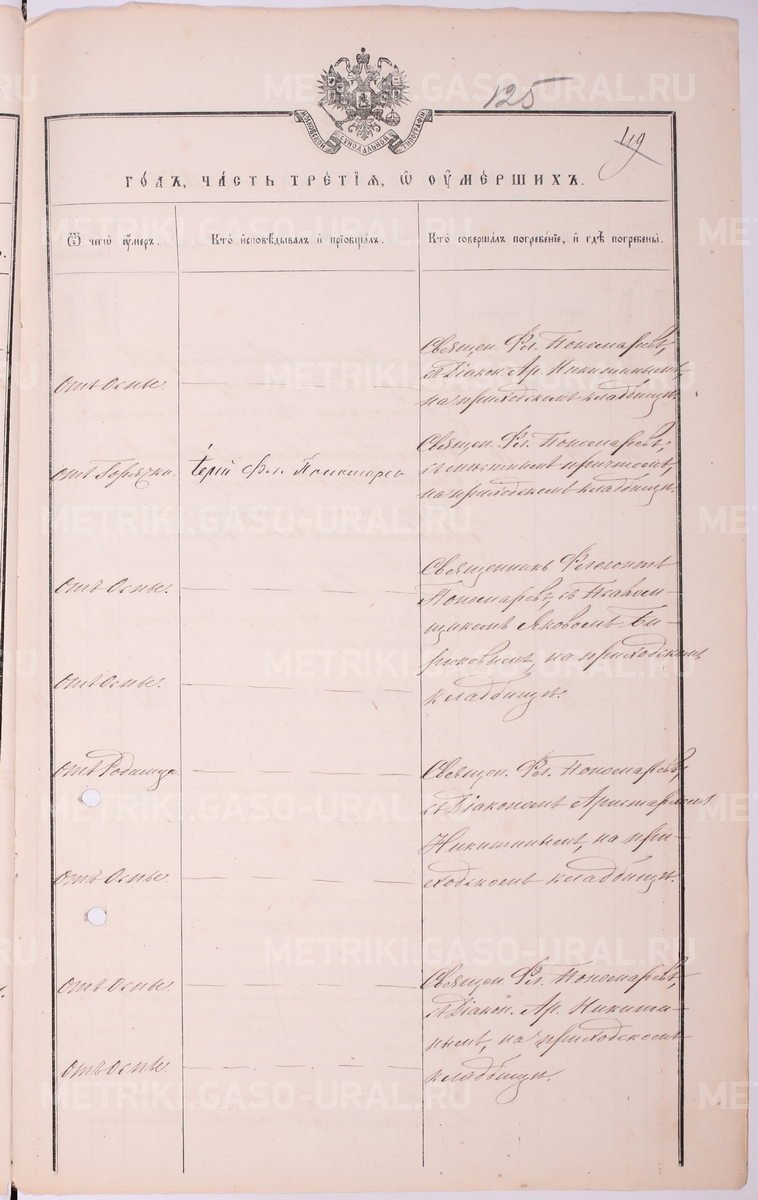 METRIKI.GASO-URAL.RU
125
119
МОСКОВСКОЙ СѴНОДАЛЬНОЙ ТИПОГРАФІИ
ГО́ДЪ, ЧА́СТЬ ТРЕ́ТІѦ, Ѡ҆ ОУ҆МЕ́РШИХЪ.
Ѿ чегѡ̀ ᲂу҆́меръ.
Кто̀ и҆сповѣ́дывалъ и҆ прїѡбща́лъ.
Кто̀ соверша́лъ погребе́нїе, и҆ гдѣ̀ погребены̀.
отъ Оспы.
Священ. Фл. Пономаревъ,
съ Діакон. Ар. Никитинымъ,
на приходскомъ кладбищѣ.
отъ Горячки.
Іерей Фл. Пономаревъ
Священ. Фл. Пономаревъ,
съ мѣстнымъ причтомъ,
на приходскомъ кладбищѣ.
отъ Оспы.
Священникъ Флегонтъ
Пономаревъ, съ Псалом-
щикомъ Яковомъ Би-
рюковымъ, на приходскомъ
кладбищѣ.
отъ Оспы.
отъ Родимца.
Священ. Фл. Пономаревъ,
съ Діакономъ Аристархомъ
Никитинымъ, на при-
ходскомъ кладбищѣ.
отъ Оспы.
отъ Оспы.
Священ. Фл. Пономаревъ,
съ Діакон. Ар. Никити-
нымъ, на приходскомъ
кладбищѣ.
отъ Оспы.